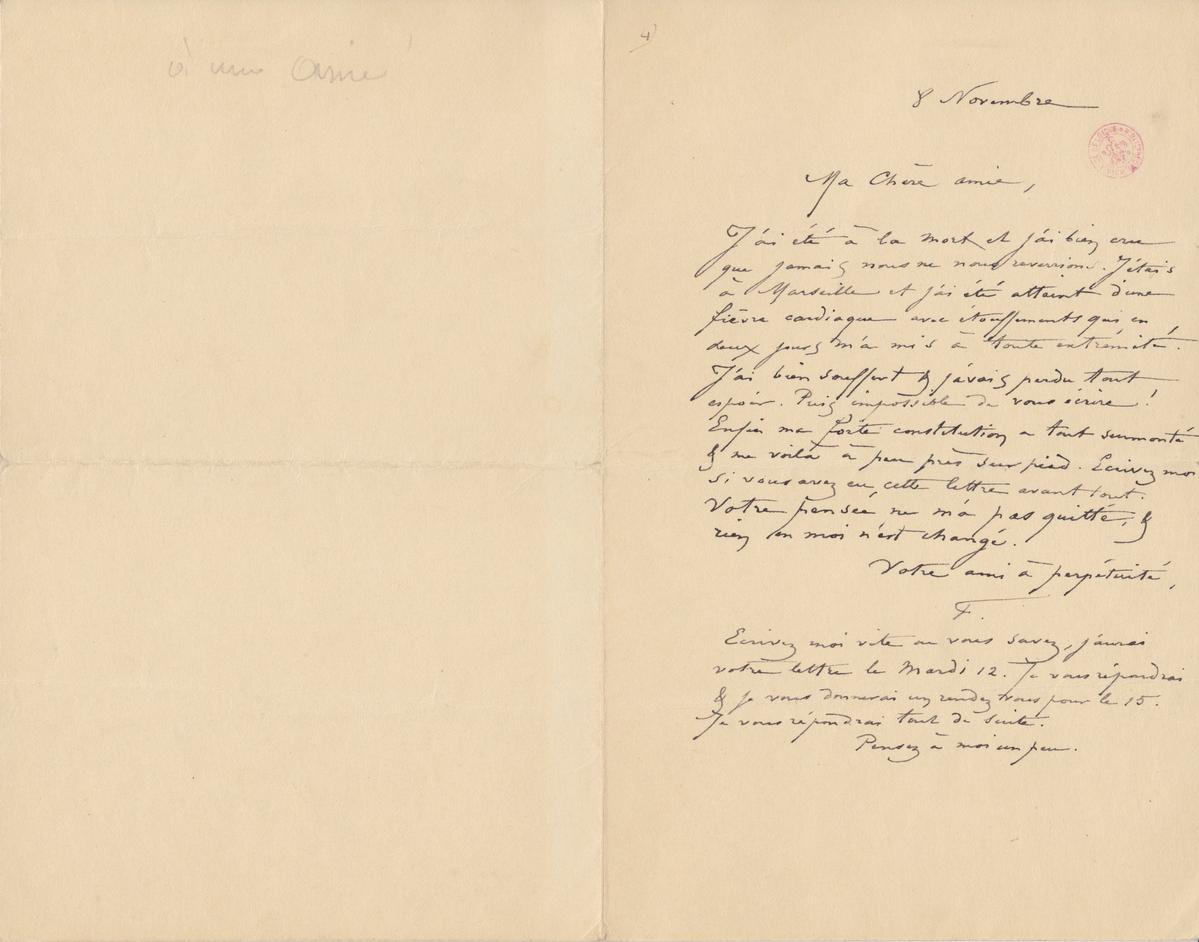 à une amie
4
8 Novembre
Ma Chère amie,
J'ai été à la mort et j'ai bien cru
que jamais nous ne nous reverrions. J'étais
à Marseille et j'ai été atteint d'une
fièvre cardiaque avec étouffements qui en
deux jours m'a mis à toute extrémité.
J'ai bien souffert & j'avais perdu tout
espoir. Puis impossible de vous écrire !
Enfin ma forte constitution a tout surmonté
& me voilà à peu près sur pied. Ecrivez moi
si vous avez eu cette lettre avant tout.
Votre pensée ne m'a pas quitté, &
rien en moi n'est changé.
Votre ami à perpétuité,
F.
Ecrivez moi vite ou vous savez, j'aurai
votre lettre le Mardi 12. Je vous répondrai
& je vous donnerai un rendez vous pour le 15.
Je vous répondrai tout de suite.
Pensez à moi un peu.